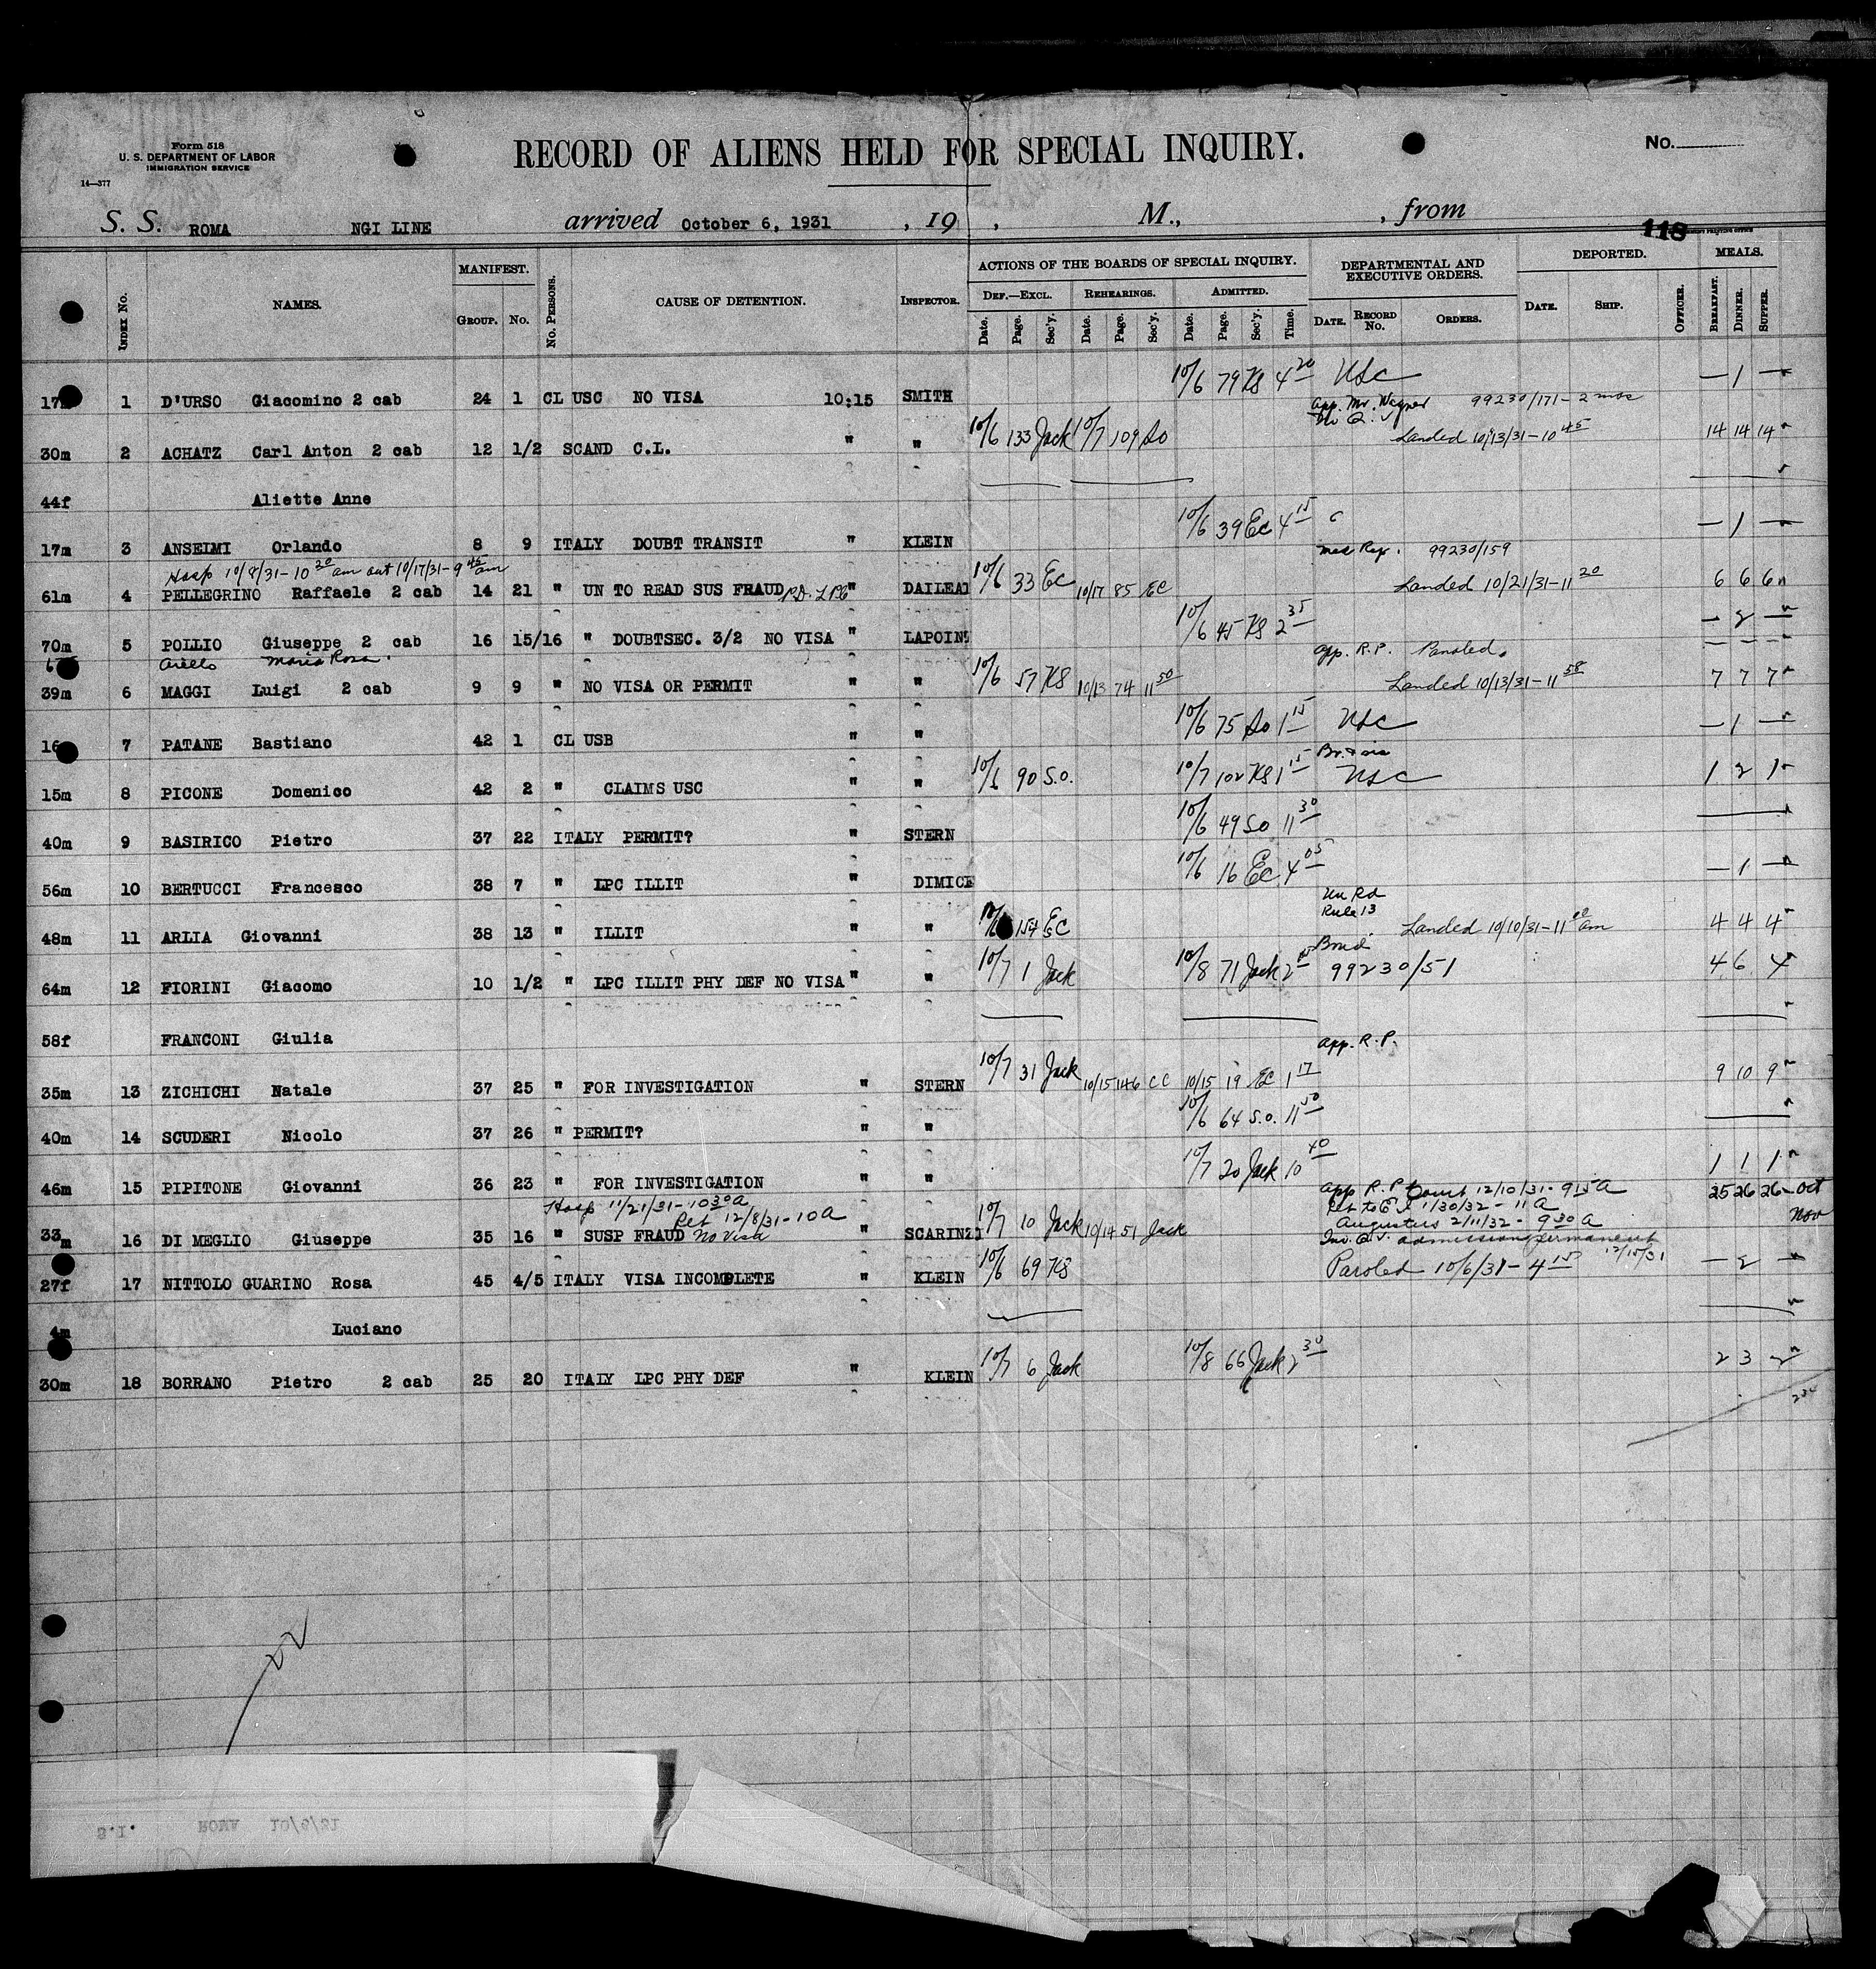 Form 518
U. S. DEPARTMENT OF LABOR
IMMIGRATION SERVICE
14—377
RECORD OF ALIENS HELD FOR SPECIAL INQUIRY.
No.
S. S. ROMA NGI LINE arrived October 6, 1931 , 19 , M., , from
118
INDEX No. NAMES. MANIFEST. GROUP. No. No. PERSONS. CAUSE OF DETENTION. INSPECTOR. ACTIONS OF THE BOARDS OF SPECIAL INQUIRY. DEPARTMENTAL AND EXECUTIVE ORDERS. DEPORTED. MEALS.
DEF.—EXCL. REHEARINGS. ADMITTED.
Date. Page. Sec'y. Date. Page. Sec'y. Date. Page. Sec'y. Time. DATE. RECORD No. ORDERS. DATE. SHIP. OFFICER. BREAKFAST. DINNER. SUPPER.
17m 1 D'URSO Giacomino 2 cab 24 1 CL USC NO VISA 10:15 SMITH 10/6 79 KS 4 20 USC — 1 —
App. Mr. Wagner 99230/171 - 2 mos
No Q.
30m 2 ACHATZ Carl Anton 2 cab 12 1/2 SCAND C.L. " " 10/6 133 Jack 10/7 109 So Landed 10/13/31 - 10 45 14 14 14
44f Aliette Anne
17m 3 ANSELMI Orlando 8 9 ITALY DOUBT TRANSIT " KLEIN 10/6 39 EC 4 15 c — 1 —
Hosp 10/8/31 - 10 30 am out 10/17/31 - 9 45 am
Med Rep. 99230/159
61m 4 PELLEGRINO Raffaele 2 cab 14 21 " UN TO READ SUS FRAUD P.D. LPC " DAILEAD 10/6 33 EC 10/17 85 EC Landed 10/21/31 - 11 20 6 6 6
70m 5 POLLIO Giuseppe 2 cab 16 15/16 " DOUBTSEC. 3/2 NO VISA " LAPOINT 10/6 45 KS 2 35 — 2 —
Aiello Maria Rosa
App. R.P. Paroled.
39m 6 MAGGI Luigi 2 cab 9 9 " NO VISA OR PERMIT " " 10/6 57 KS 10/13 74 11 50 Landed 10/13/31 - 11 58 7 7 7
16 7 PATANE Bastiano 42 1 CL USB " " 10/6 75 So 1 15 USC — 1 —
15m 8 PICONE Domenico 42 2 " CLAIMS USC " " 10/6 90 S.O. 10/7 102 KS 1 15 USC 1 2 1
40m 9 BASIRICO Pietro 37 22 ITALY PERMIT? " STERN 10/6 49 SO 11 30
56m 10 BERTUCCI Francesco 38 7 " LPC ILLIT " DIMICE 10/6 16 EC 4 05 — 1 —
Un Rd
Rule 13
48m 11 ARLIA Giovanni 38 13 " ILLIT " " 154 EC Landed 10/10/31 - 11 00 am 4 4 4
Bond
64m 12 FIORINI Giacomo 10 1/2 " LPC ILLIT PHY DEF NO VISA " " 10/7 1 Jack 10/8 71 Jack 2 99230/51 4 6 4
58f FRANCONI Giulia
App. R.P.
35m 13 ZICHICHI Natale 37 25 " FOR INVESTIGATION " STERN 10/7 31 Jack 10/15 146 CC 10/15 19 EC 1 17 9 10 9
40m 14 SCUDERI Nicolo 37 26 " PERMIT? " " 10/6 64 S.O. 11 50
46m 15 PIPITONE Giovanni 36 23 " FOR INVESTIGATION " " 10/7 20 Jack 10 40 1 1 1
Hosp 11/21/31 - 10 30 A
Ret 12/8/31 - 10 A
App R.P. Court 12/10/31 - 9 15 A 25 26 26 Oct
Ret to E.I. 1/30/32 - 11 A
Nov
Augustus 2/11/32 - 9 30 A
33m 16 DI MEGLIO Giuseppe 35 16 " SUSP FRAUD No Visa " SCARINZI 10/7 10 Jack 10/14 51 Jack admission permanent
12/15/31
27f 17 NITTOLO GUARINO Rosa 45 4/5 ITALY VISA INCOMPLETE " KLEIN 10/6 69 KS Paroled 10/6/31 - 4 15 — 2 —
4m Luciano
30m 18 BORRANO Pietro 2 cab 25 20 ITALY LPC PHY DEF " KLEIN 10/7 6 Jack 10/8 66 Jack 2 30 2 3 2
22
S.I. ROMA 10/6/31